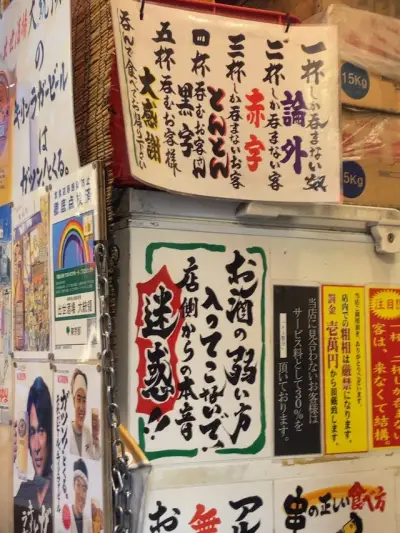 一杯しか呑まない奴
論外
二杯しか呑まない客
赤字
三杯しか呑まない客
とんとん
四杯呑むお客さん
黒字
五杯呑むお客様
大感謝
呑んで食べてお帰り下さい
15Kg
5Kg
のキリンラガービール
はガツンとくる。
お酒の弱い方
入ってこないで!
店側からの本音
迷惑!!
当店に見合わないお客様は
サービス料として30%を
頂いております。
店内での粗相は厳禁になります。
罰金 壱萬円から頂戴致します。
注目
客は、来なくて結構
徹底点検済
出世酒場 大統領
東京都
ガツンとくる。
串の正しい食べ方
アル
無
お